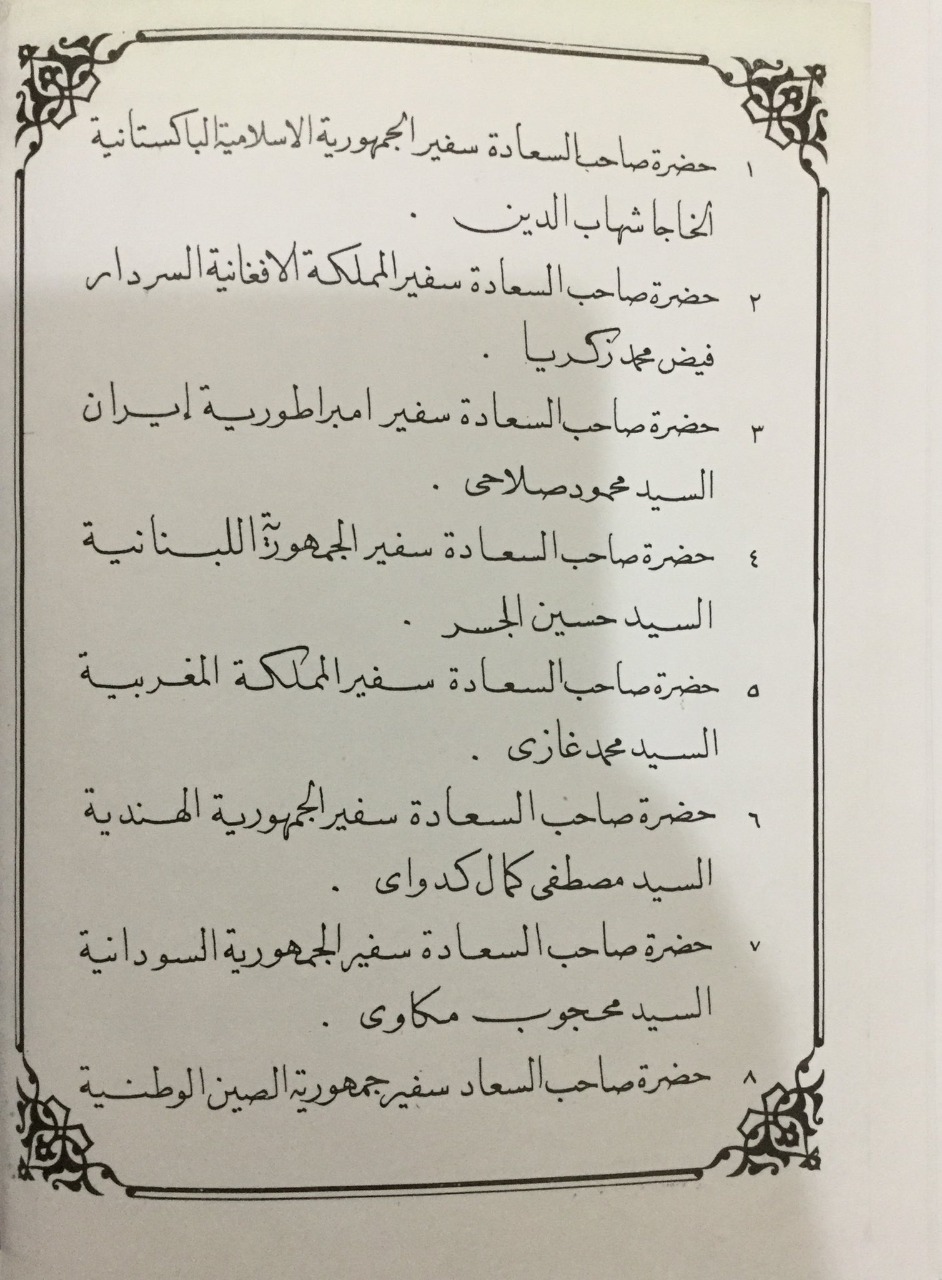 ١ حضرة صاحب السعادة سفير الجمهورية الاسلامية الباكستانية
الخاجا شهاب الدين .
٢ حضرة صاحب السعادة سفير المملكة الافغانية السردار
فيض محمد زكريا .
٣ حضرة صاحب السعادة سفير امبراطورية إيران
السيد محمود صلاحى .
٤ حضرة صاحب السعادة سفير الجمهورية اللبنانية
السيد حسين الجسر .
٥ حضرة صاحب السعادة سفير المملكة المغربية
السيد محمد غازى .
٦ حضرة صاحب السعادة سفير الجمهورية الهندية
السيد مصطفى كمال كدواى .
٧ حضرة صاحب السعادة سفير الجمهورية السودانية
السيد محجوب مكاوى .
٨ حضرة صاحب السعاد سفير جمهورية الصين الوطنية